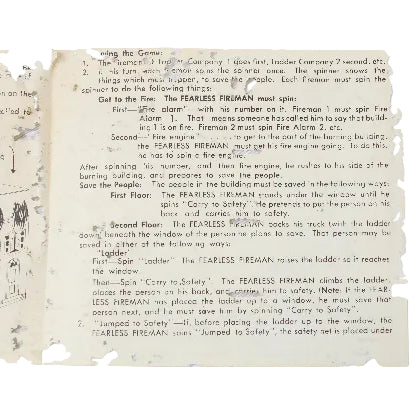 ying the Game:
1. The Fireman at Ladder Company 1 goes first, Ladder Company 2 second, etc.
2. In his turn each Fireman spins the spinner once. The spinner shows the
things which must happen, to save the people. Each fireman must spin the
spinner to do the following things:
Get to the Fire: The FEARLESS FIREMAN must spin:
First—"Fire alarm" with his number on it. Fireman 1 must spin Fire
Alarm 1. That means someone has called him to say that build-
ing 1 is on fire. Fireman 2 must spin Fire Alarm 2, etc.
Second—"Fire engine" . . . . to get to the part of the burning building,
the FEARLESS FIREMAN must get his fire engine going. To do this,
he has to spin a fire engine.
After spinning his number, and then fire engine, he rushes to his side of the
burning building, and prepares to save the people.
Save the People: The people in the building must be saved in the following ways:
First Floor: The FEARLESS FIREMAN stands under the window until he
spins "Carry to Safety". He pretends to put the person on his
back and carries him to safety.
Second Floor: The FEARLESS FIREMAN backs his truck (with the ladder
down) beneath the window of the person he plans to save. That person may be
saved in either of the following ways:
"Ladder"
First—Spin "Ladder". The FEARLESS FIREMAN raises the ladder so it reaches
the window.
Then—Spin "Carry to Safety". The FEARLESS FIREMAN climbs the ladder,
places the person on his back, and carries him to safety. (Note: If the FEAR-
LESS FIREMAN has placed the ladder up to a window, he must save that
person next, and he must save him by spinning "Carry to Safety".
2. "Jumped to Safety"—If, before placing the ladder up to the window, the
FEARLESS FIREMAN spins "Jumped to Safety", the safety net is placed under